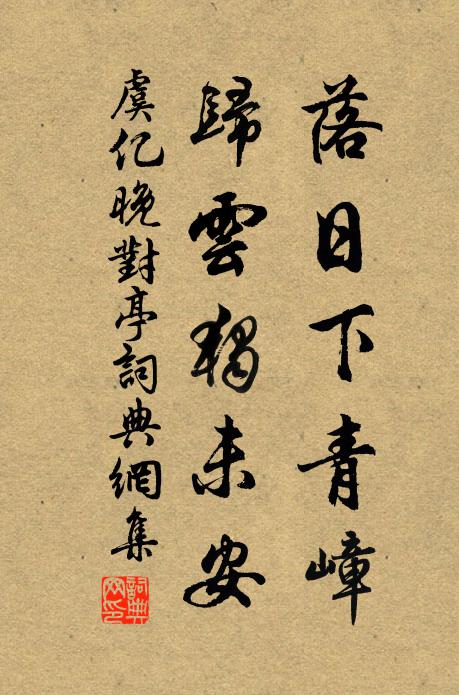 落日下青嶂
歸雲獨未安
虞仡晚對亭詞典網集
詞典網印